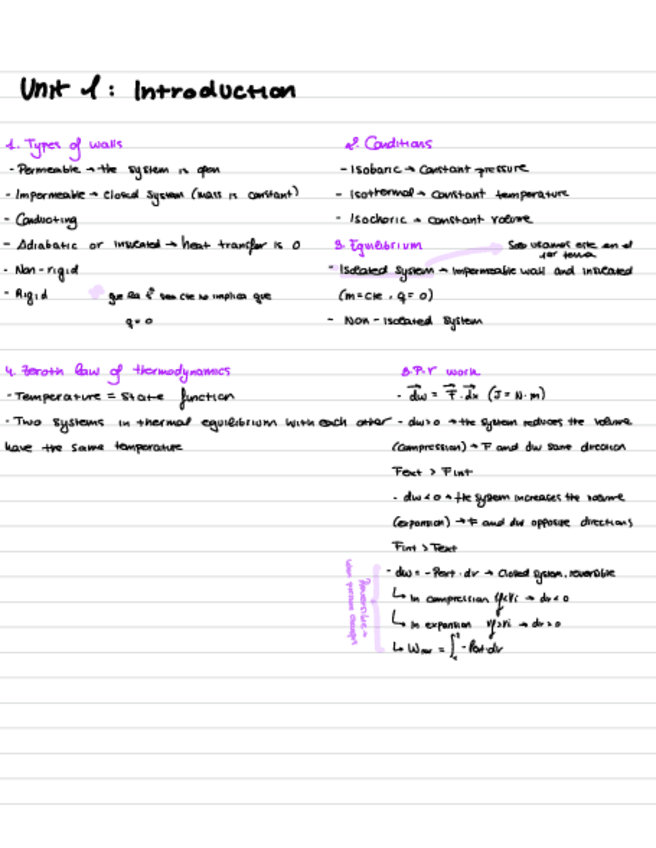 Unit 1: Introduction
1. Types of walls
- Permeable → the system is open
- Impermeable → closed system (mass is constant)
- Conducting
- Adiabatic or insulated → heat transfer is 0
- Non-rigid
- Rigid
que la tª sea cte no implica que
q=0
2. Conditions
- Isobaric → constant pressure
- Isothermal → constant temperature
- Isochoric → constant volume
3. Equilibrium
Solo usamos este en el
1er tema
- Isolated system → impermeable wall and insulated
(m=cte, q=0)
- Non-isolated system
4. Zeroth law of thermodynamics
- Temperature = state function
- Two systems in thermal equilibrium with each other
have the same temperature
5. P.V work
- dw = F · dx (J = N·m)
- dw>0 → the system reduces the volume
(compression) → F and dw same direction
Fext > Fint
- dw<0 → the system increases the volume
(expansion) → F and dw opposite directions
Fint > Fext
- dw = -Pext · dv → closed system, reversible
↳ in compression Vf<Vi → dv<0
↳ in expansion Vf>Vi → dv>0
Reversible =
when pressure changes